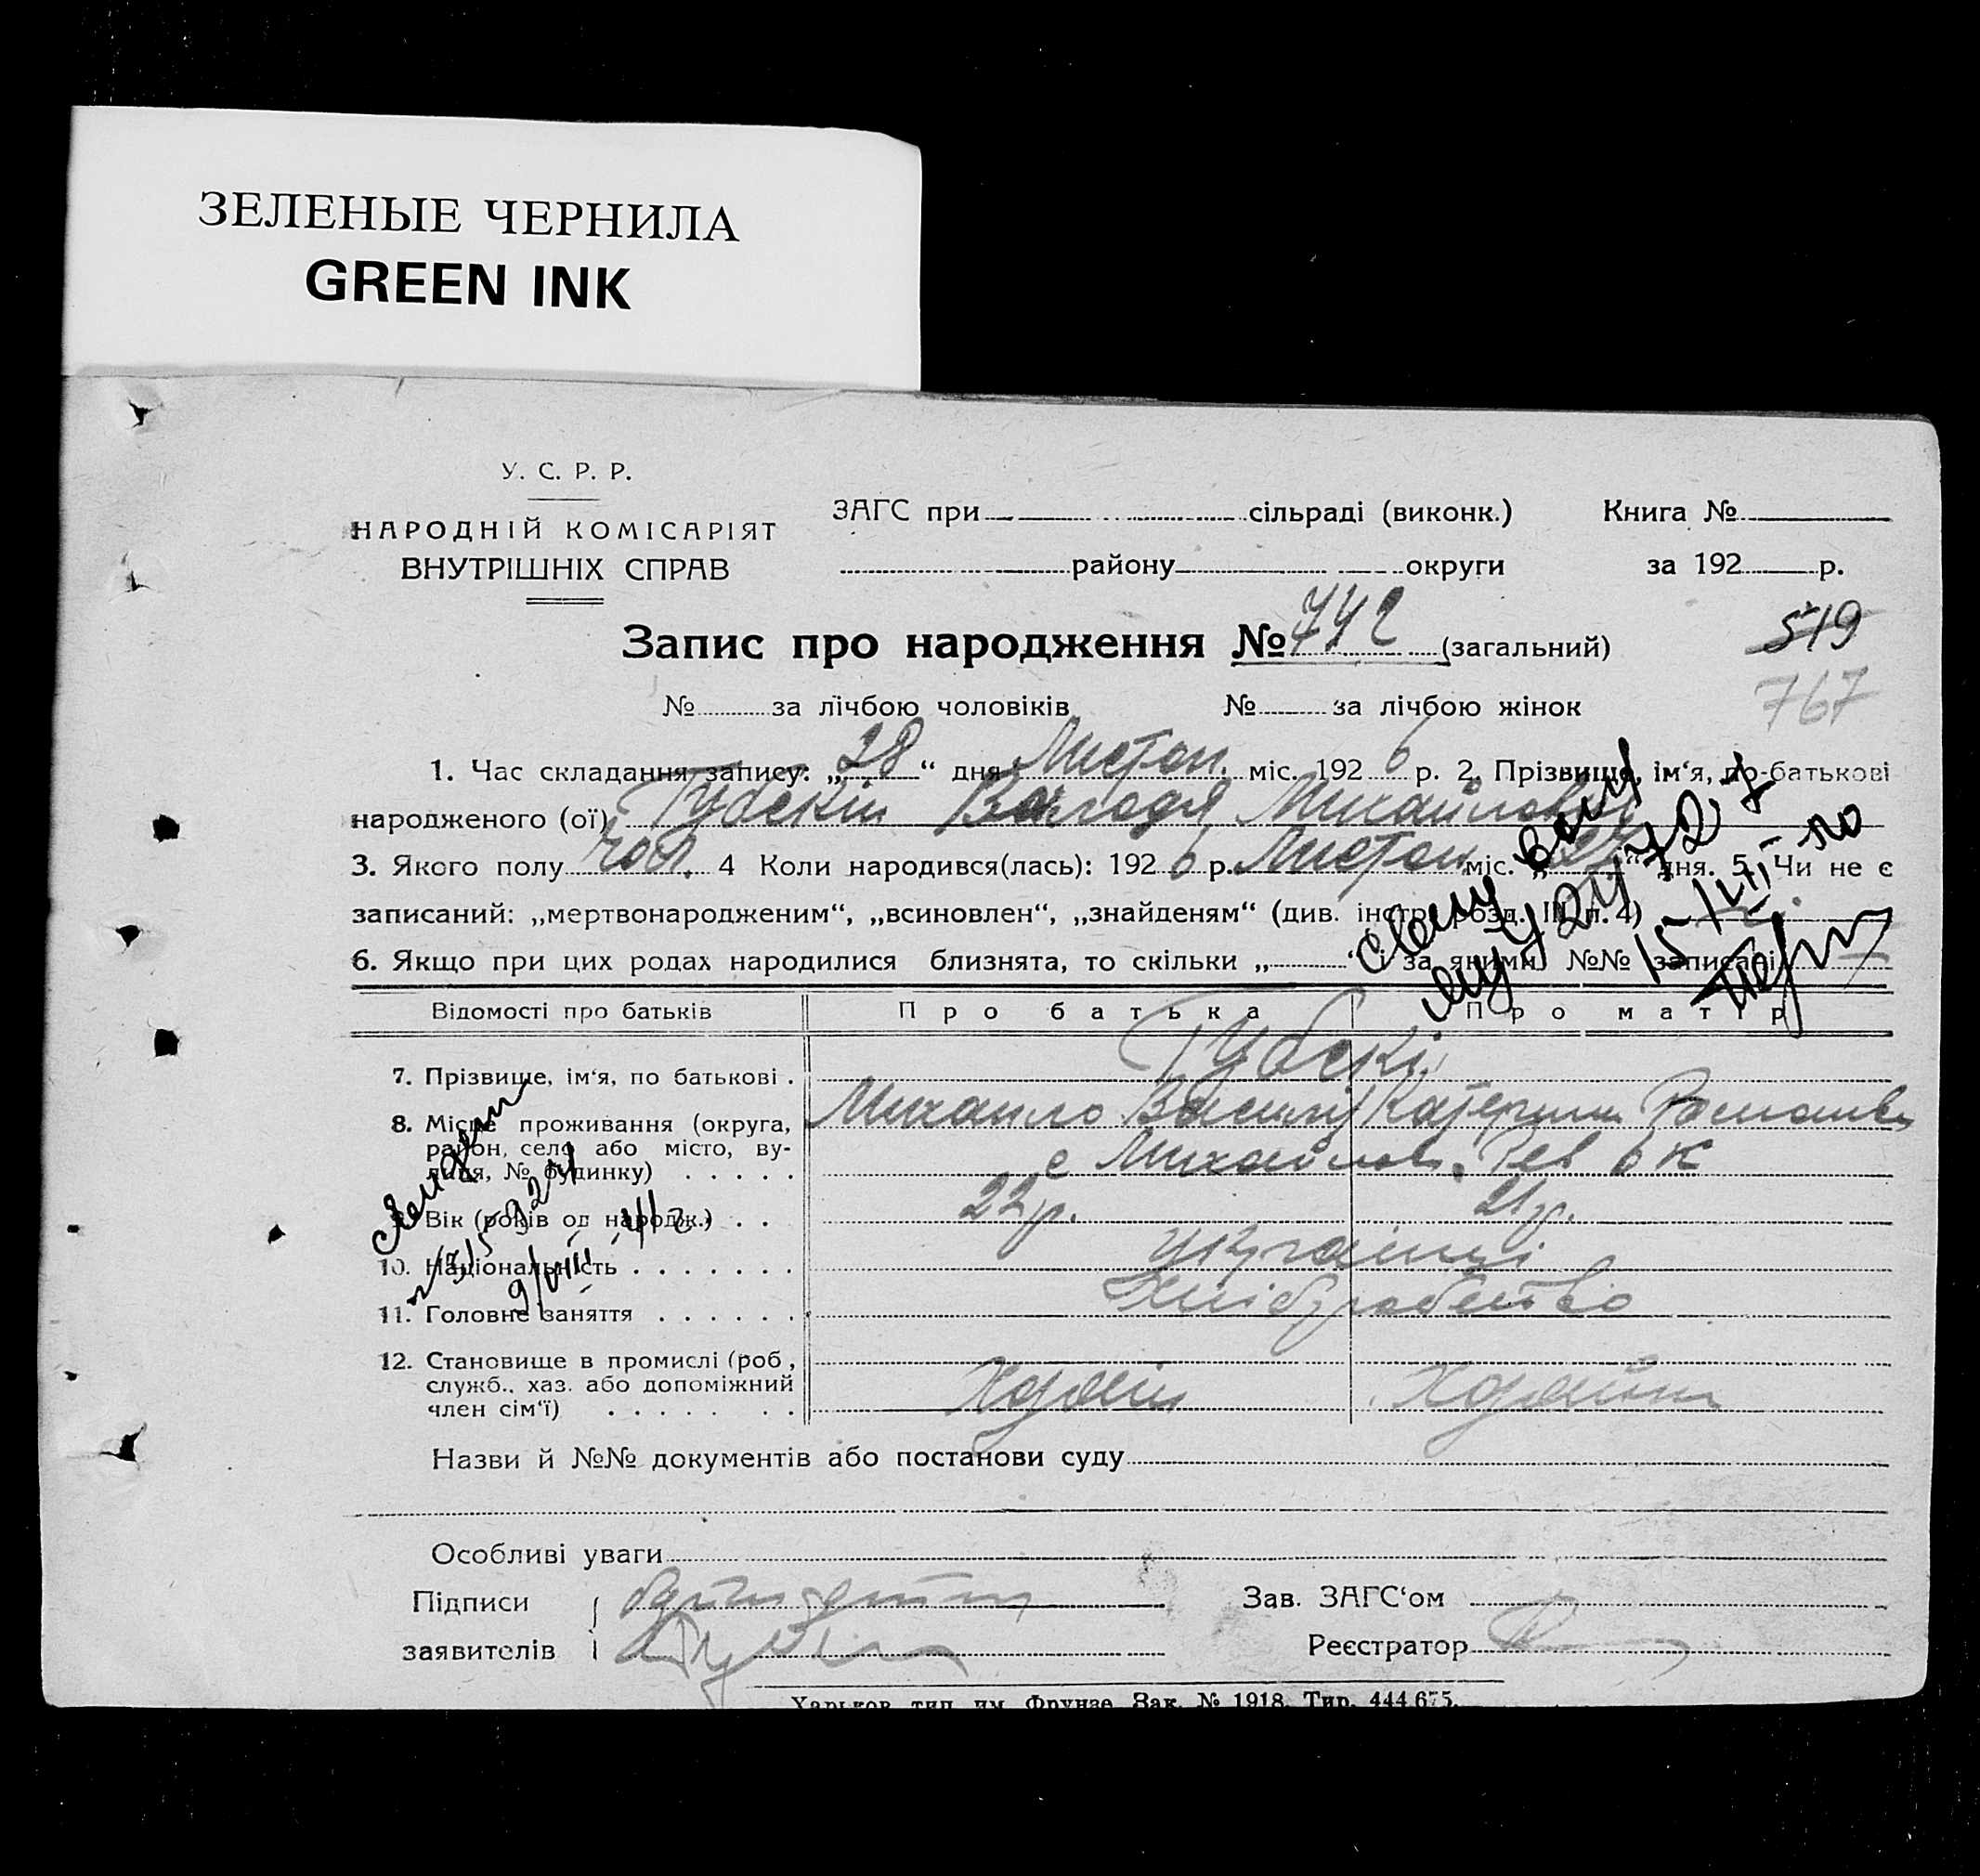 ЗЕЛЕНЫЕ ЧЕРНИЛА
GREEN INK
У. С. Р. Р.
НАРОДНІЙ КОМІСАРІЯТ
ВНУТРІШНІХ СПРАВ
ЗАГС при сільраді (виконк.) Книга №
району округи за 192 р.
Запис про народження № 742 (загальний) 519
767
№ за лічбою чоловіків № за лічбою жінок
1. Час складання запису: „28“ дня Листоп. міс. 1926 р. 2. Прізвище, ім‘я, по-батькові
народженого (ої) Губскій Володя Михайлович
3. Якого полу чол. 4 Коли народився(лась): 1926 р. Листоп міс. „27“ дня. 5. Чи не є
записаний: „мертвонародженим“, „всиновлен“, „знайденям“ (див. інстр. розд. III п. 4)
6. Якщо при цих родах народилися близнята, то скільки „ “ і за якими №№ записані
Відомості про батьків Про батька Про матір
7. Прізвище, ім‘я, по батькові . Губскі
Михайло Василів Катерина Романівн
8. Місце проживання (округа, район, село або місто, вулиця, № будинку) . . . . . с Михайлов.
9. Вік (років од народж.) . . 22 р. 21 р.
10. Національність . . . . . . . українці
11. Головне заняття . . . . . . Хліборобство
12. Становище в промислі (роб., служб., хаз. або допоміжний член сім‘ї) . . . . . . . Хазяін Хазяйка
Назви й №№ документів або постанови суду
Особливі уваги
Підписи
заявителів
Зав. ЗАГС‘ом
Реєстратор
Харьков, тип. им. Фрунзе. Зак. № 1918. Тир. 444.675.